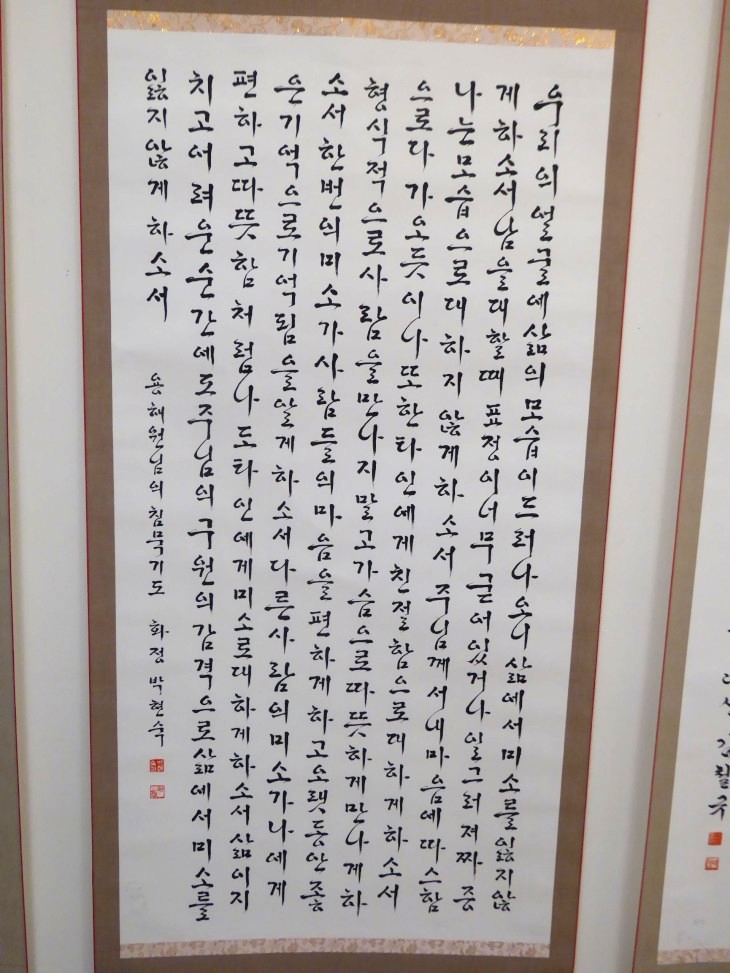 우리의얼굴에삶의모습이드러나오니삶에서미소를잃지않
게하소서남을대할때표정이너무굳어있거나일그러져짜증
나는모습으로대하지않게하소서주님께서내마음에따스함
으로다가오듯이나또한타인에게친절함으로대하게하소서
형식적으로사람을만나지말고가슴으로따뜻하게만나게하
소서한번의미소가사람들의마음을편하게하고오랫동안좋
은기억으로기억됨을알게하소서다른사람의미소가나에게
편하고따뜻함처럼나도타인에게미소로대하게하소서삶이지
치고어려운순간에도주님의구원의감격으로삶에서미소를
잃지않게하소서 용해원님의침묵기도 화정박현숙